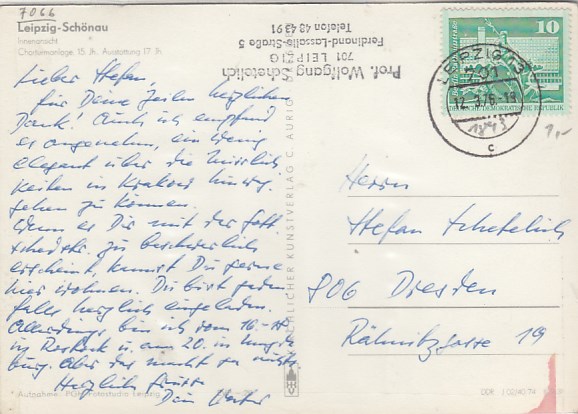 7066
Leipzig-Schönau
Innenansicht
Chorturmanlage, 15. Jh. Ausstattung 17. Jh.
Prof. Wolfgang Schetelich
701 LEIPZIG
Ferdinand-Lassalle-Straße 5
Telefon 48 43 91
10
LEIPZIG
701
12.3.76-19
c
1,-
Lieber Stefan,
für Deine Zeilen herzlichen
Dank! Auch ich empfand
es angenehm, ein wenig
elegant über die Misslich
keiten in Krakow hinweg
gehen zu können.
Wenn es Dir mit der Gott
schedstr. zu beschwerlich
erscheint, kannst Du gerne
hier wohnen. Du bist jeden
falls herzlich eingeladen.
Allerdings bin ich vom 16.-18.
in Rostock u. am 20. in
burg. Aber das macht ja nichts.
Herzlich grüßt
Dein Vater
Herrn
Stefan Schetelich
806 Dresden
Rähnitzgasse 19
Aufnahme: PGH Fotostudio Leipzig
DDR